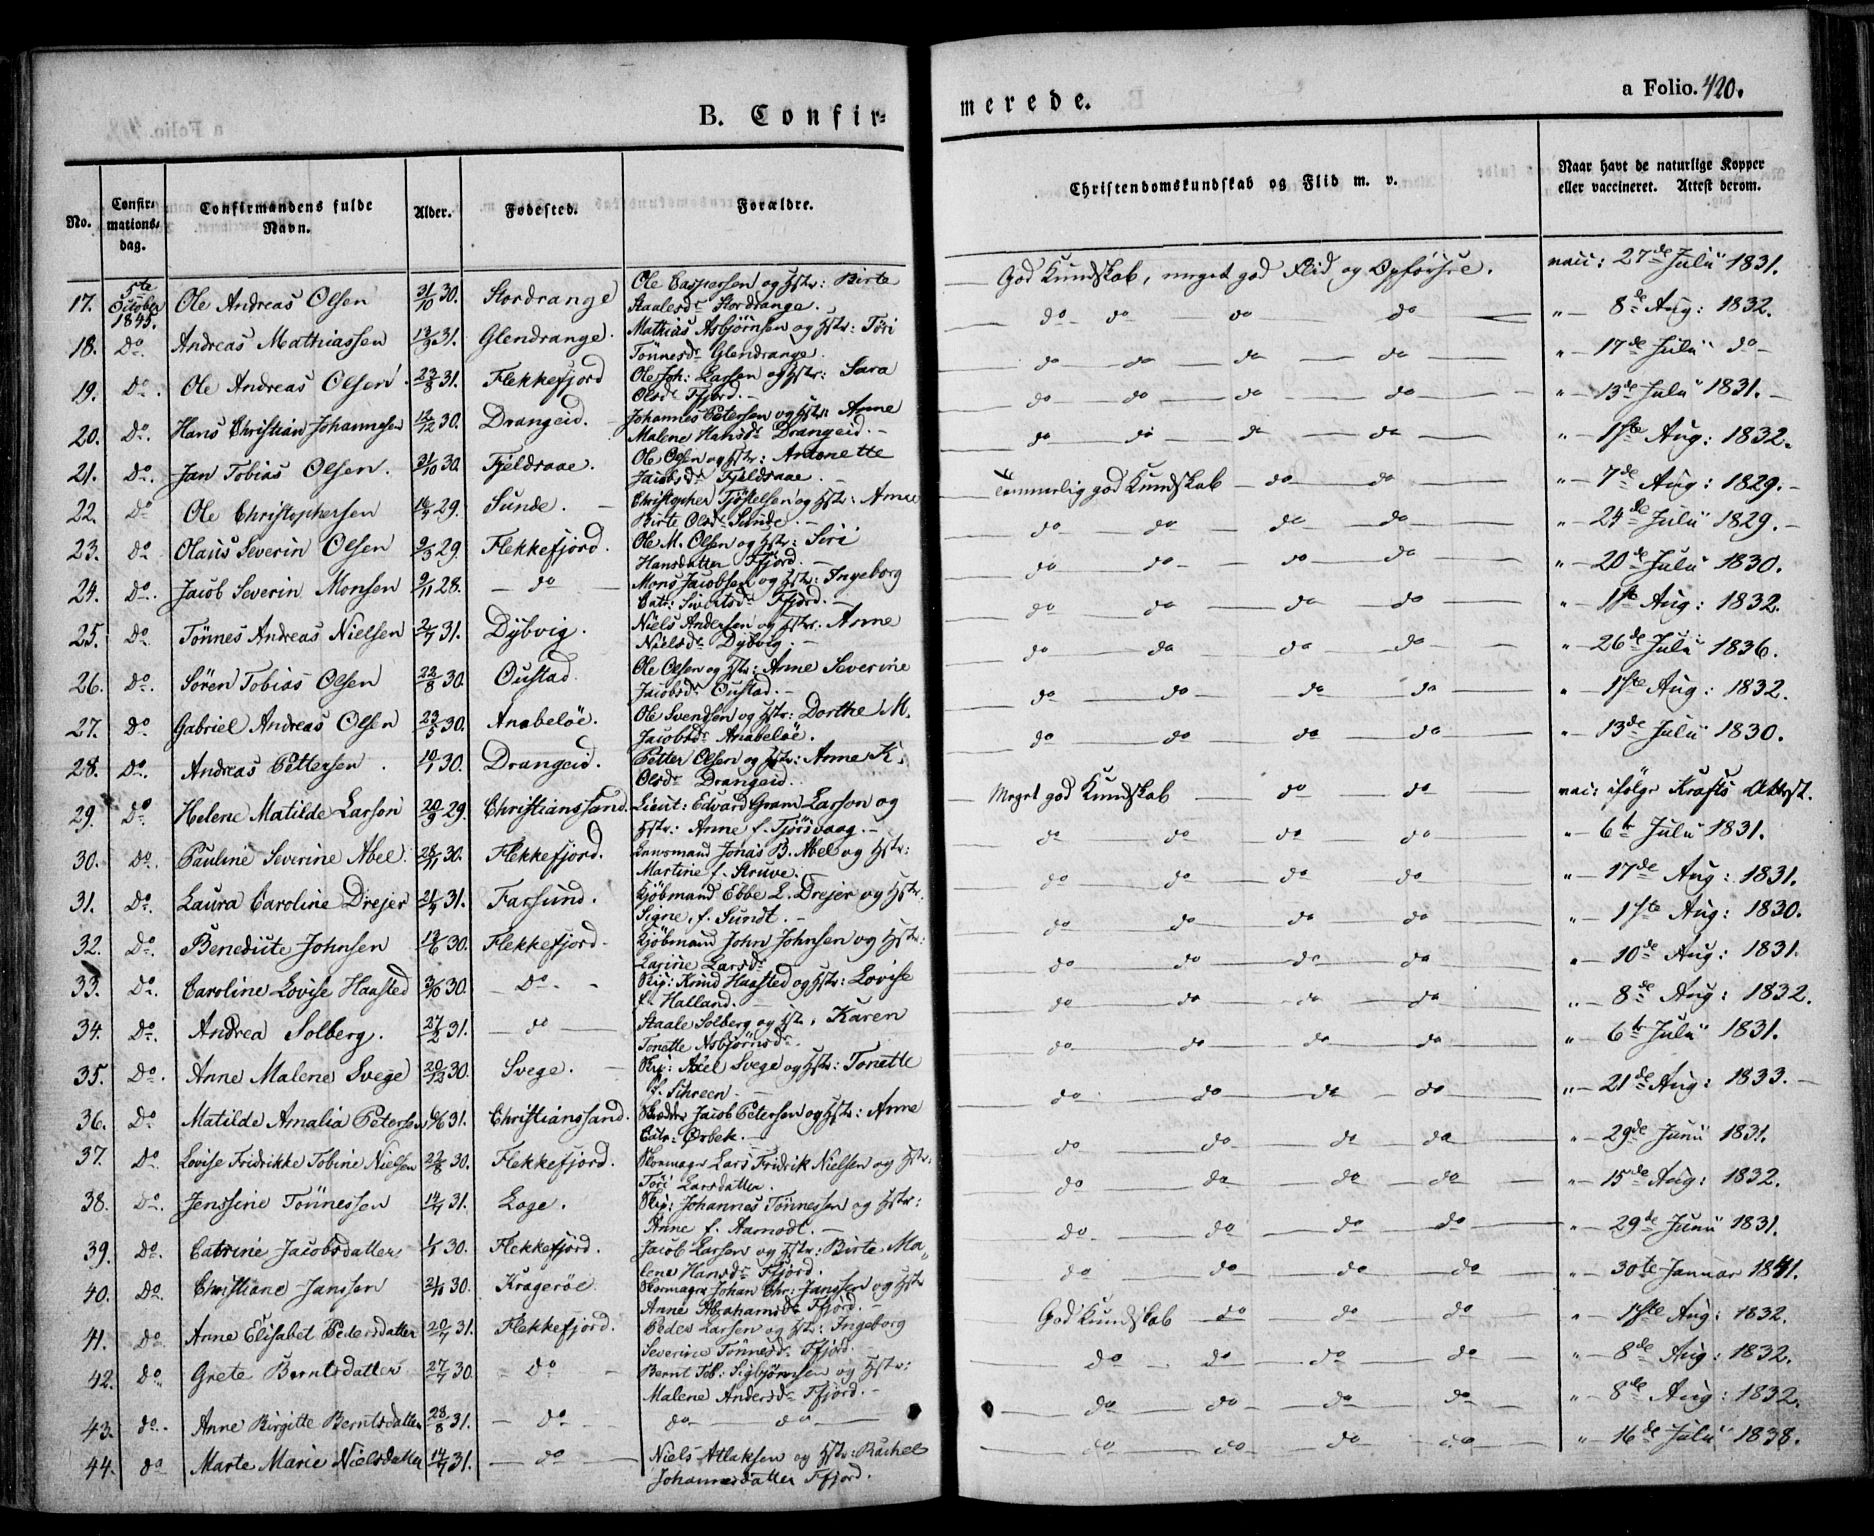 B. Confir-
merede.
a Folio. 420.
No.
Confir-
mations-
dag.
Confirmandens fulde
Navn.
Alder.
Fødested.
Forældre.
Christendomskundskab og Flid m. v.
Naar havt de naturlige Kopper
eller vaccineret. Attest derom.
17. 5te October 1845. Ole Andreas Olsen 31/10 30. Stordrange Ole Caspersen og Hstr: Birte
Staalesdr Stordrange. God Kundskab, meget god Flid og Opførsel. vacc: 27de Juli 1831.
18. Do. Andreas Mathiassen 31. Glendrange. Mathias Asbjørnsen og Hstr: Tøri
Tønnesdr Glendrange. do do do do " 8de Aug: 1832.
19. Do. Ole Andreas Olsen 23/8 31. Flekkefjord Ole Joh: Larsen og Hstr: Sara
Olsdr Ffjord. do do do do " 17de Juli do
20. Do. Hans Christian Johannesen 12/12 30. Drangeid. Johannes Petersen og Hstr: Anne
Malene Hansdr Drangeid. do do do do " 13de Juli 1831.
21. Do. Jan Tobias Olsen. 31/10 30. Fjeldsaae. Ole Olsen og Hstr: Antonette
Jacobsdr Fjeldsaae. do do do do " 1ste Aug: 1832.
22. Do Ole Christophersen 29. Sunde. Christopher Tjøstelsen og Hstr: Anne
Birte Olsdr Sunde. Temmerlig god Kundskab do do " 7de Aug: 1829.
23. Do Olaus Severin Olsen 9/3 29. Flekkefjord. Ole M. Olsen og Hstr: Siri
Hansdatter Ffjord. do do do do " 24de Juli 1829.
24. Do. Jacob Severin Monsen 9/11 28. do Mons Jacobsen og Hstr: Ingeborg
Catr: Sivertsdr Ffjord. do do do do " 20de Juli 1830.
25. Do Tönnes Andreas Nielsen 2/7 31. Dybvig. Niels Andersen og Hstr: Anne
Nielsdr Dybvig. do do do do " 1ste Aug: 1832.
26. Do. Sören Tobias Olsen 22/8 30. Oustad. Ole Olsen og Hstr: Anne Severine
Jacobsdr Oustad. do do do do " 26de Juli 1836.
27. Do Gabriel Andreas Olsen 23/5 30. Anabeløe. Ole Svendsen og Hstr: Dorthe M.
Jacobsdr Anabeløe. do do do do " 1ste Aug: 1832.
28. Do. Andreas Pettersen 10/1 30. Drangeid. Petter Olsen og Hstr: Anne K.
Olsdr Drangeid. do do do do " 13de Juli 1830.
29. Do Helene Matilde Larson 20/9 29. Christianssand. Lieut: Edvard Gram Larson og
Hstr: Anne f. Tjörsvaag. Meget god Kundskab do do vac: ifølge Krafts Attest.
30. Do. Pauline Severine Abel. 28/11 30. Flekkefjord. Lensmand Jonas B. Abel og Hstr:
Martine f. Struve. do do do do " 6te Juli 1831.
31. Do. Laura Caroline Drejer 21/4 31. Farsund. Kjöbmand Ebbe L. Drejer og Hstr:
Signe, f. Sundt. do do do do " 17de Aug: 1831.
32. Do Benedicte Johnsen 13/6 30. Flekkefjord Kjöbmand John Johnsen og Hstr:
Larine Larsdr do do do do " 1ste Aug: 1830.
33. Do. Caroline Lovise Haasted 3/10 30. Do. Skip: Knud Haasted og Hstr: Lovise
f. Halland. do do do do " 10de Aug: 1831.
34. Do. Andrea Solberg. 27/2 31. do Staale Solberg og Hstr: Karen
Tonette Asbjörnsdr do do do do " 8de Aug: 1832.
35. Do. Anne Malene Svege 20/12 30. Svege. Skip: Axel Svege og Hstr: Tonette
f. Schreen do do do do " 6te Juli 1831.
36. Do Matilde Amalia Petersen 31. Christianssand. Jacob Petersen og Hstr: Anne
Catr: Ørbek. do do do do " 21de Aug: 1833.
37. Do. Lovise Fridrikke Tobine Nielsen 22/8 30. Flekkefjord. Skomager Lars Fridrik Nielsen og Hstr:
Töri Larsdatter. do do do do " 29de Juni 1831.
38. Do. Jenssine Tönnessen 14/4 31. Loge. Skip: Johannes Tönnessen og Hstr:
Anne f. Aamodt. do do do do " 15de Aug: 1832.
39. Do. Catrine Jacobsdatter 30. Flekkefjord. Jacob Larsen og Hstr: Birte Ma-
lene Hansdr Ffjord. do do do do " 29de Juni 1831.
40. Do. Christiane Janssen 30. Kragerøe Skomager Johan Chr: Janssen og Hstr
Anne Abrahamsdr Ffjord. do do do do " 30te Januar 1841.
41. Do Anne Elisabet Pedersdatter 20/7 31. Flekkefjord. Peder Larsen og Hstr: Ingeborg
Severine Tönnesdr Ffjord. God Kundskab do do do " 1ste Aug: 1832.
42. Do. Grete Berntsdatter 27/7 30 Do Bernt Tob: Sigbjörnsen og Hstr:
Malene Andersdr Ffjord. do do do do " 8de Aug: 1832.
43. do. Anne Birgitte Berntsdatter 28/8 31. do do do do do do do " 8de Aug: 1832.
44. do Marte Marie Nielsdatter 14/7 31. do Niels Atlaksen og Hstr: Rachel
Johannesdatter Ffjord. do do do do " 16de Juli 1838.